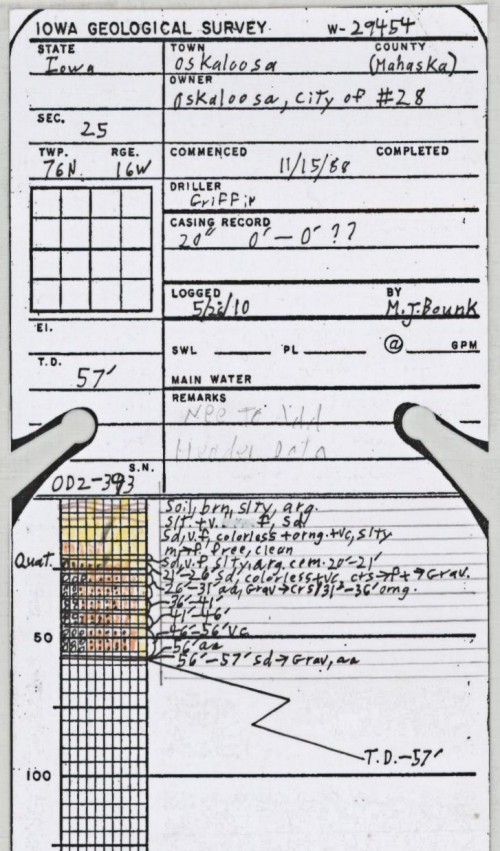 IOWA GEOLOGICAL SURVEY W-29454
STATE TOWN COUNTY
Iowa Oskaloosa (Mahaska)
OWNER
Oskaloosa, City of #28
SEC.
25
TWP. RGE. COMMENCED COMPLETED
76N. 16W 11/15/88
DRILLER
Griffin
CASING RECORD
20" 0'-0' ??
LOGGED BY
10 M.J. Bounk
El.
SWL PL @ GPM
T.D.
57'
MAIN WATER
REMARKS
Need To Add
Header Data
S.N.
OD2-393
Soil, brn, slty, arg.
Slt +v. f, sd
Sd, v.f, colorless +orng. +vc, slty
m→f, free, clean
Quat. Sd, v.f, slty, arg. cem. 20'-21'
21'-26' sd, colorless+vc, crs→f+→Grav.
26'-31' aa, Grav→crs, 31'-36' orng.
36'-41'
41'-46'
50 46'-56' vc
56' aa
56'-57' sd→Grav, aa
T.D.-57'
100